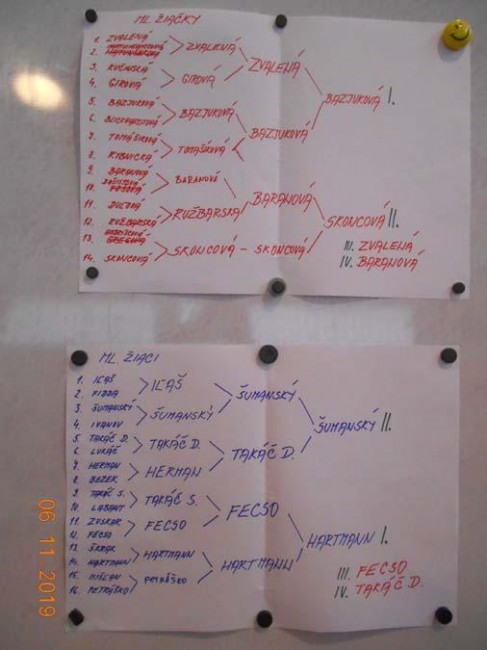 ML. ŽIAČKY
1. ZVALENÁ
2.
3. KUČINSKÁ
4. GIROVÁ
5. BAZJUKOVÁ
6.
7. TOMÁŠIKOVÁ
8. RYBNICKÁ
9. BARANOVÁ
10.
11. DUĽOVÁ
12. RUŽBARSKÁ
13.
14. SKONCOVÁ
ZVALENÁ
GIROVÁ
BAZJUKOVÁ
TOMÁŠIKOVÁ
BARANOVÁ
RUŽBARSKÁ
SKONCOVÁ - SKONCOVÁ
ZVALENÁ
BAZJUKOVÁ
BARANOVÁ
BAZJUKOVÁ I.
SKONCOVÁ II.
III. ZVALENÁ
IV. BARANOVÁ
ML. ŽIACI
1. IĽAŠ
2. FIDDA
3. ŠUMANSKÝ
4. IVANOV
5. TAKÁČ D.
6. LUKÁČ
7. HERMAN
8. BOZEK
9. TAKÁČ S.
10. LABANT
11.
12. FECSO
13.
14. HARTMANN
15. MIŠLAN
16. PETRÁŠKO
IĽAŠ
ŠUMANSKÝ
TAKÁČ D.
HERMAN
TAKÁČ S.
FECSO
HARTMANN
PETRÁŠKO
ŠUMANSKÝ
TAKÁČ D.
FECSO
HARTMANN
ŠUMANSKÝ II.
HARTMANN I.
III. FECSO
IV. TAKÁČ D.
06 11 2019